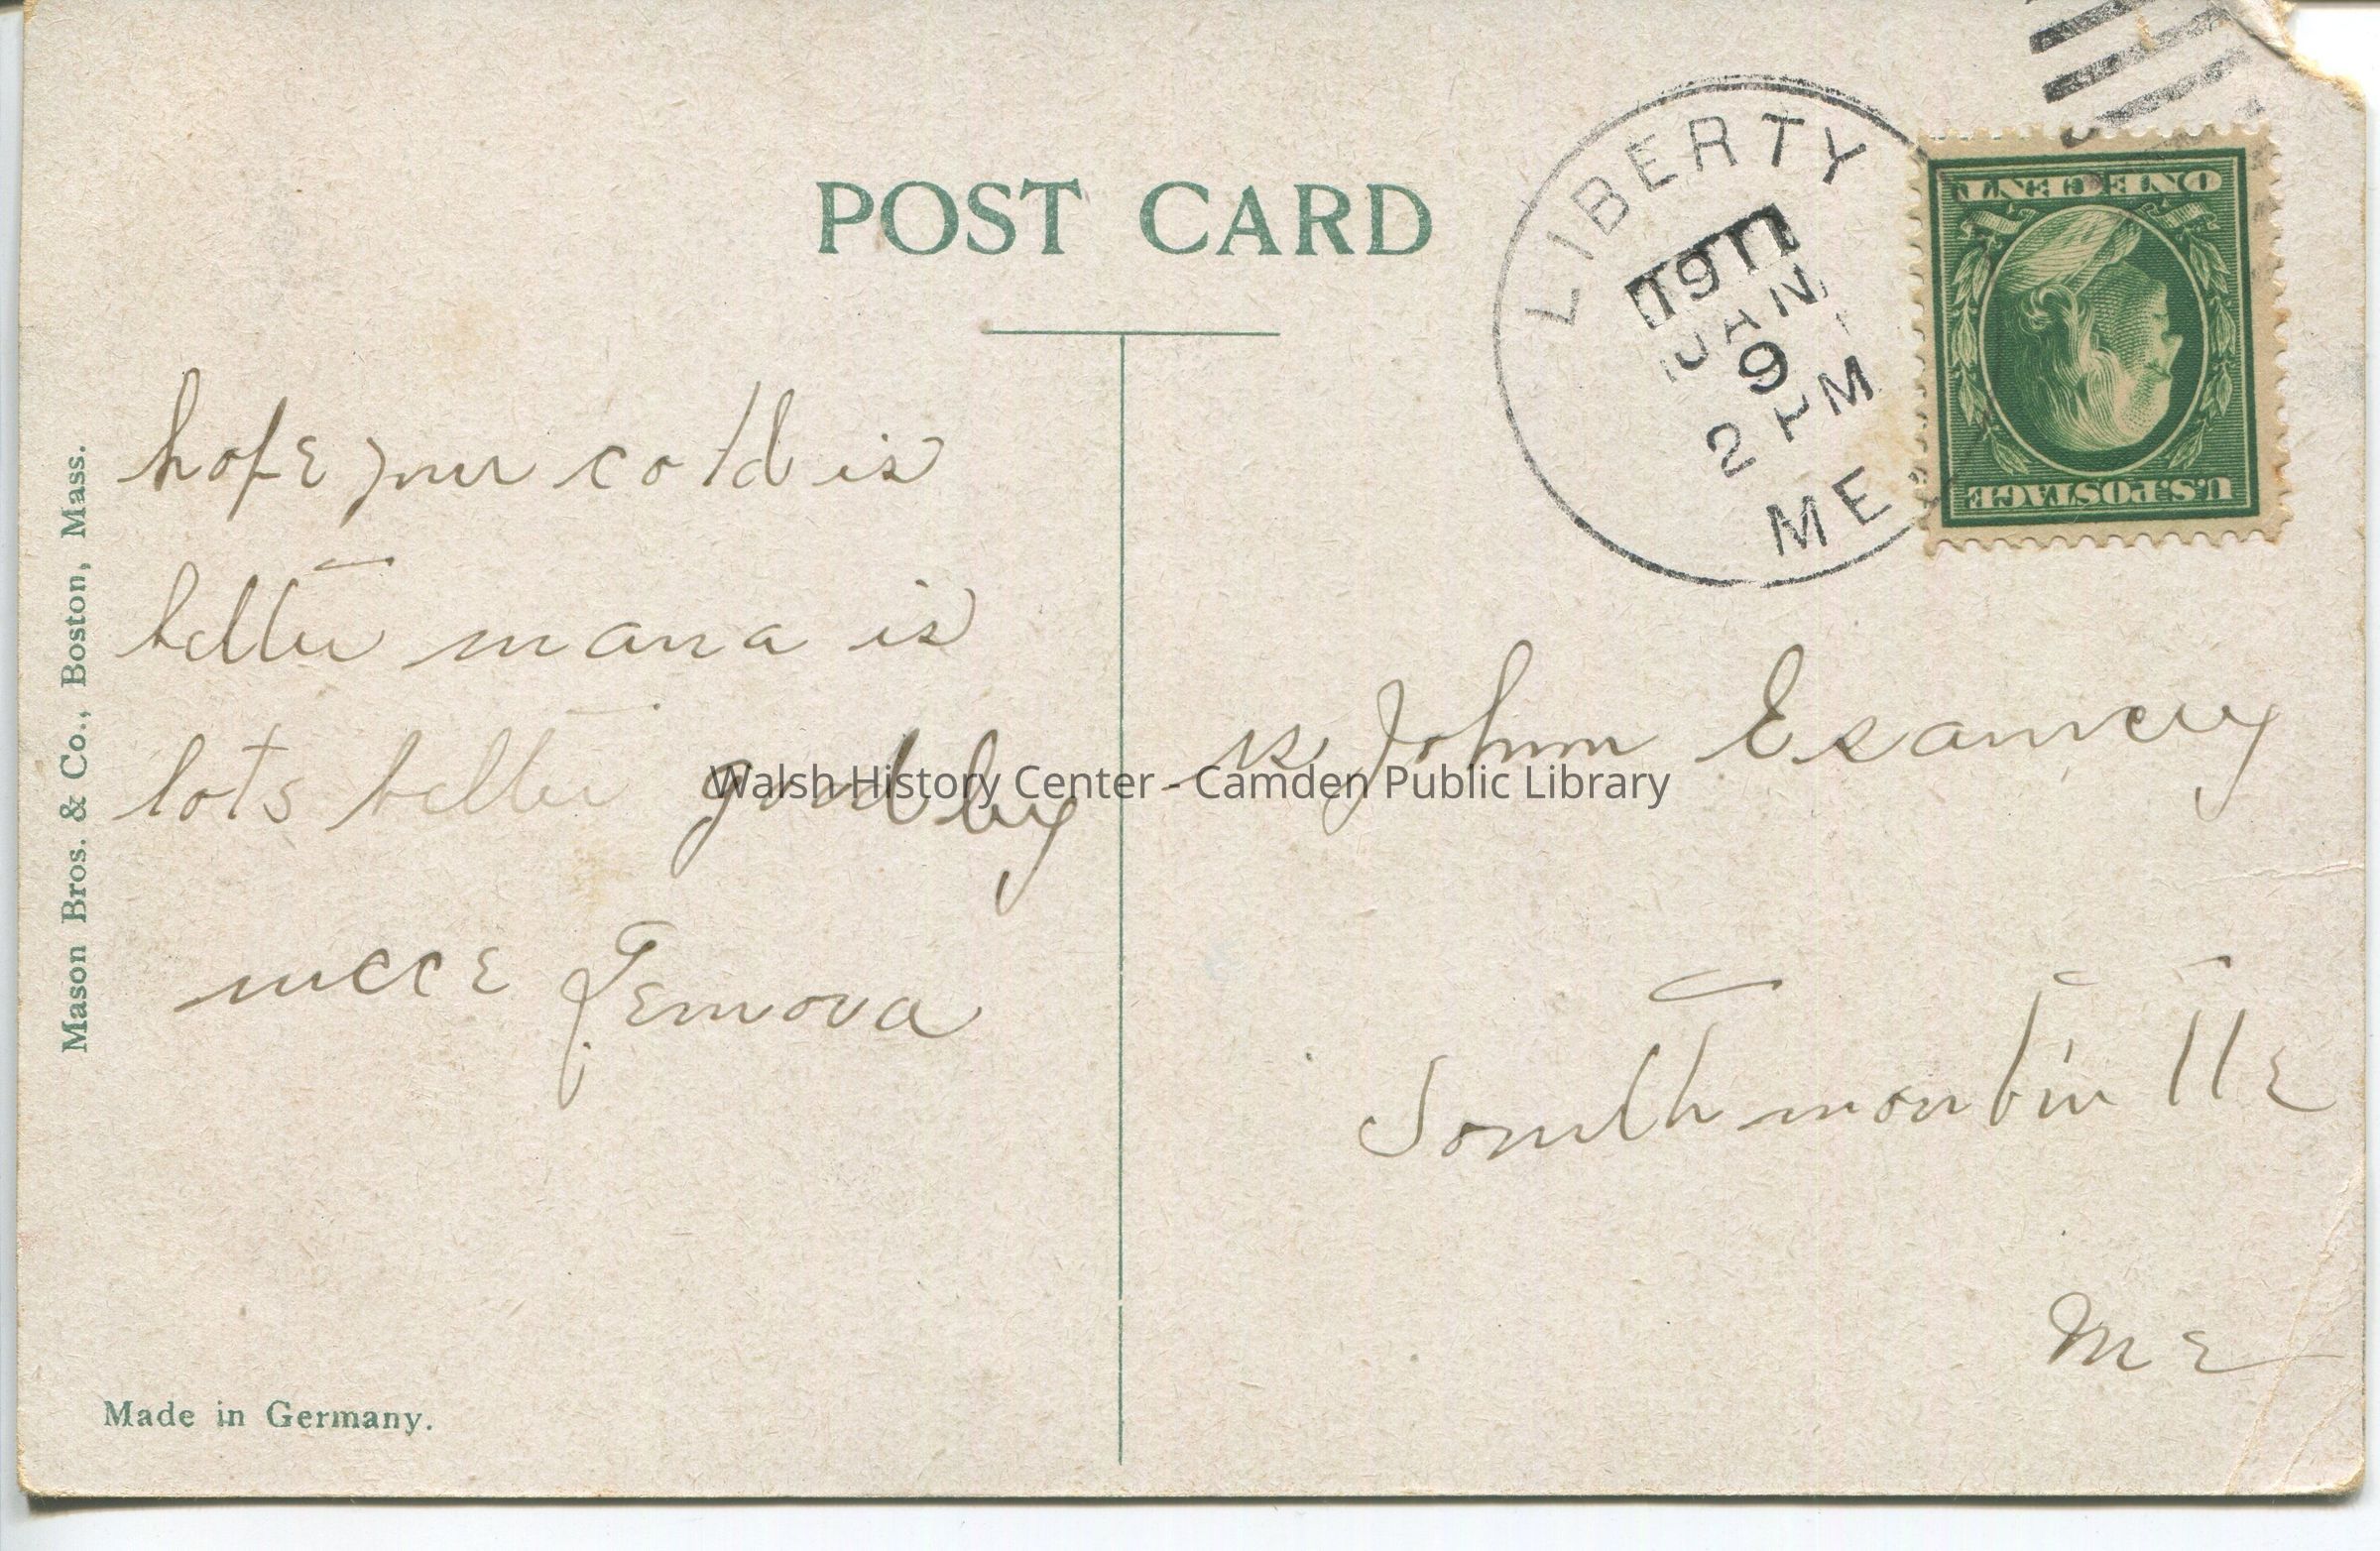 POST CARD
LIBERTY
1911
JAN
9
2 PM
ME
ONE CENT
U.S. POSTAGE
hope your cold is
better mama is
lots better good by
niece Genova
John Esancy
South montville
ME
Walsh History Center - Camden Public Library
Mason Bros. & Co., Boston, Mass.
Made in Germany.